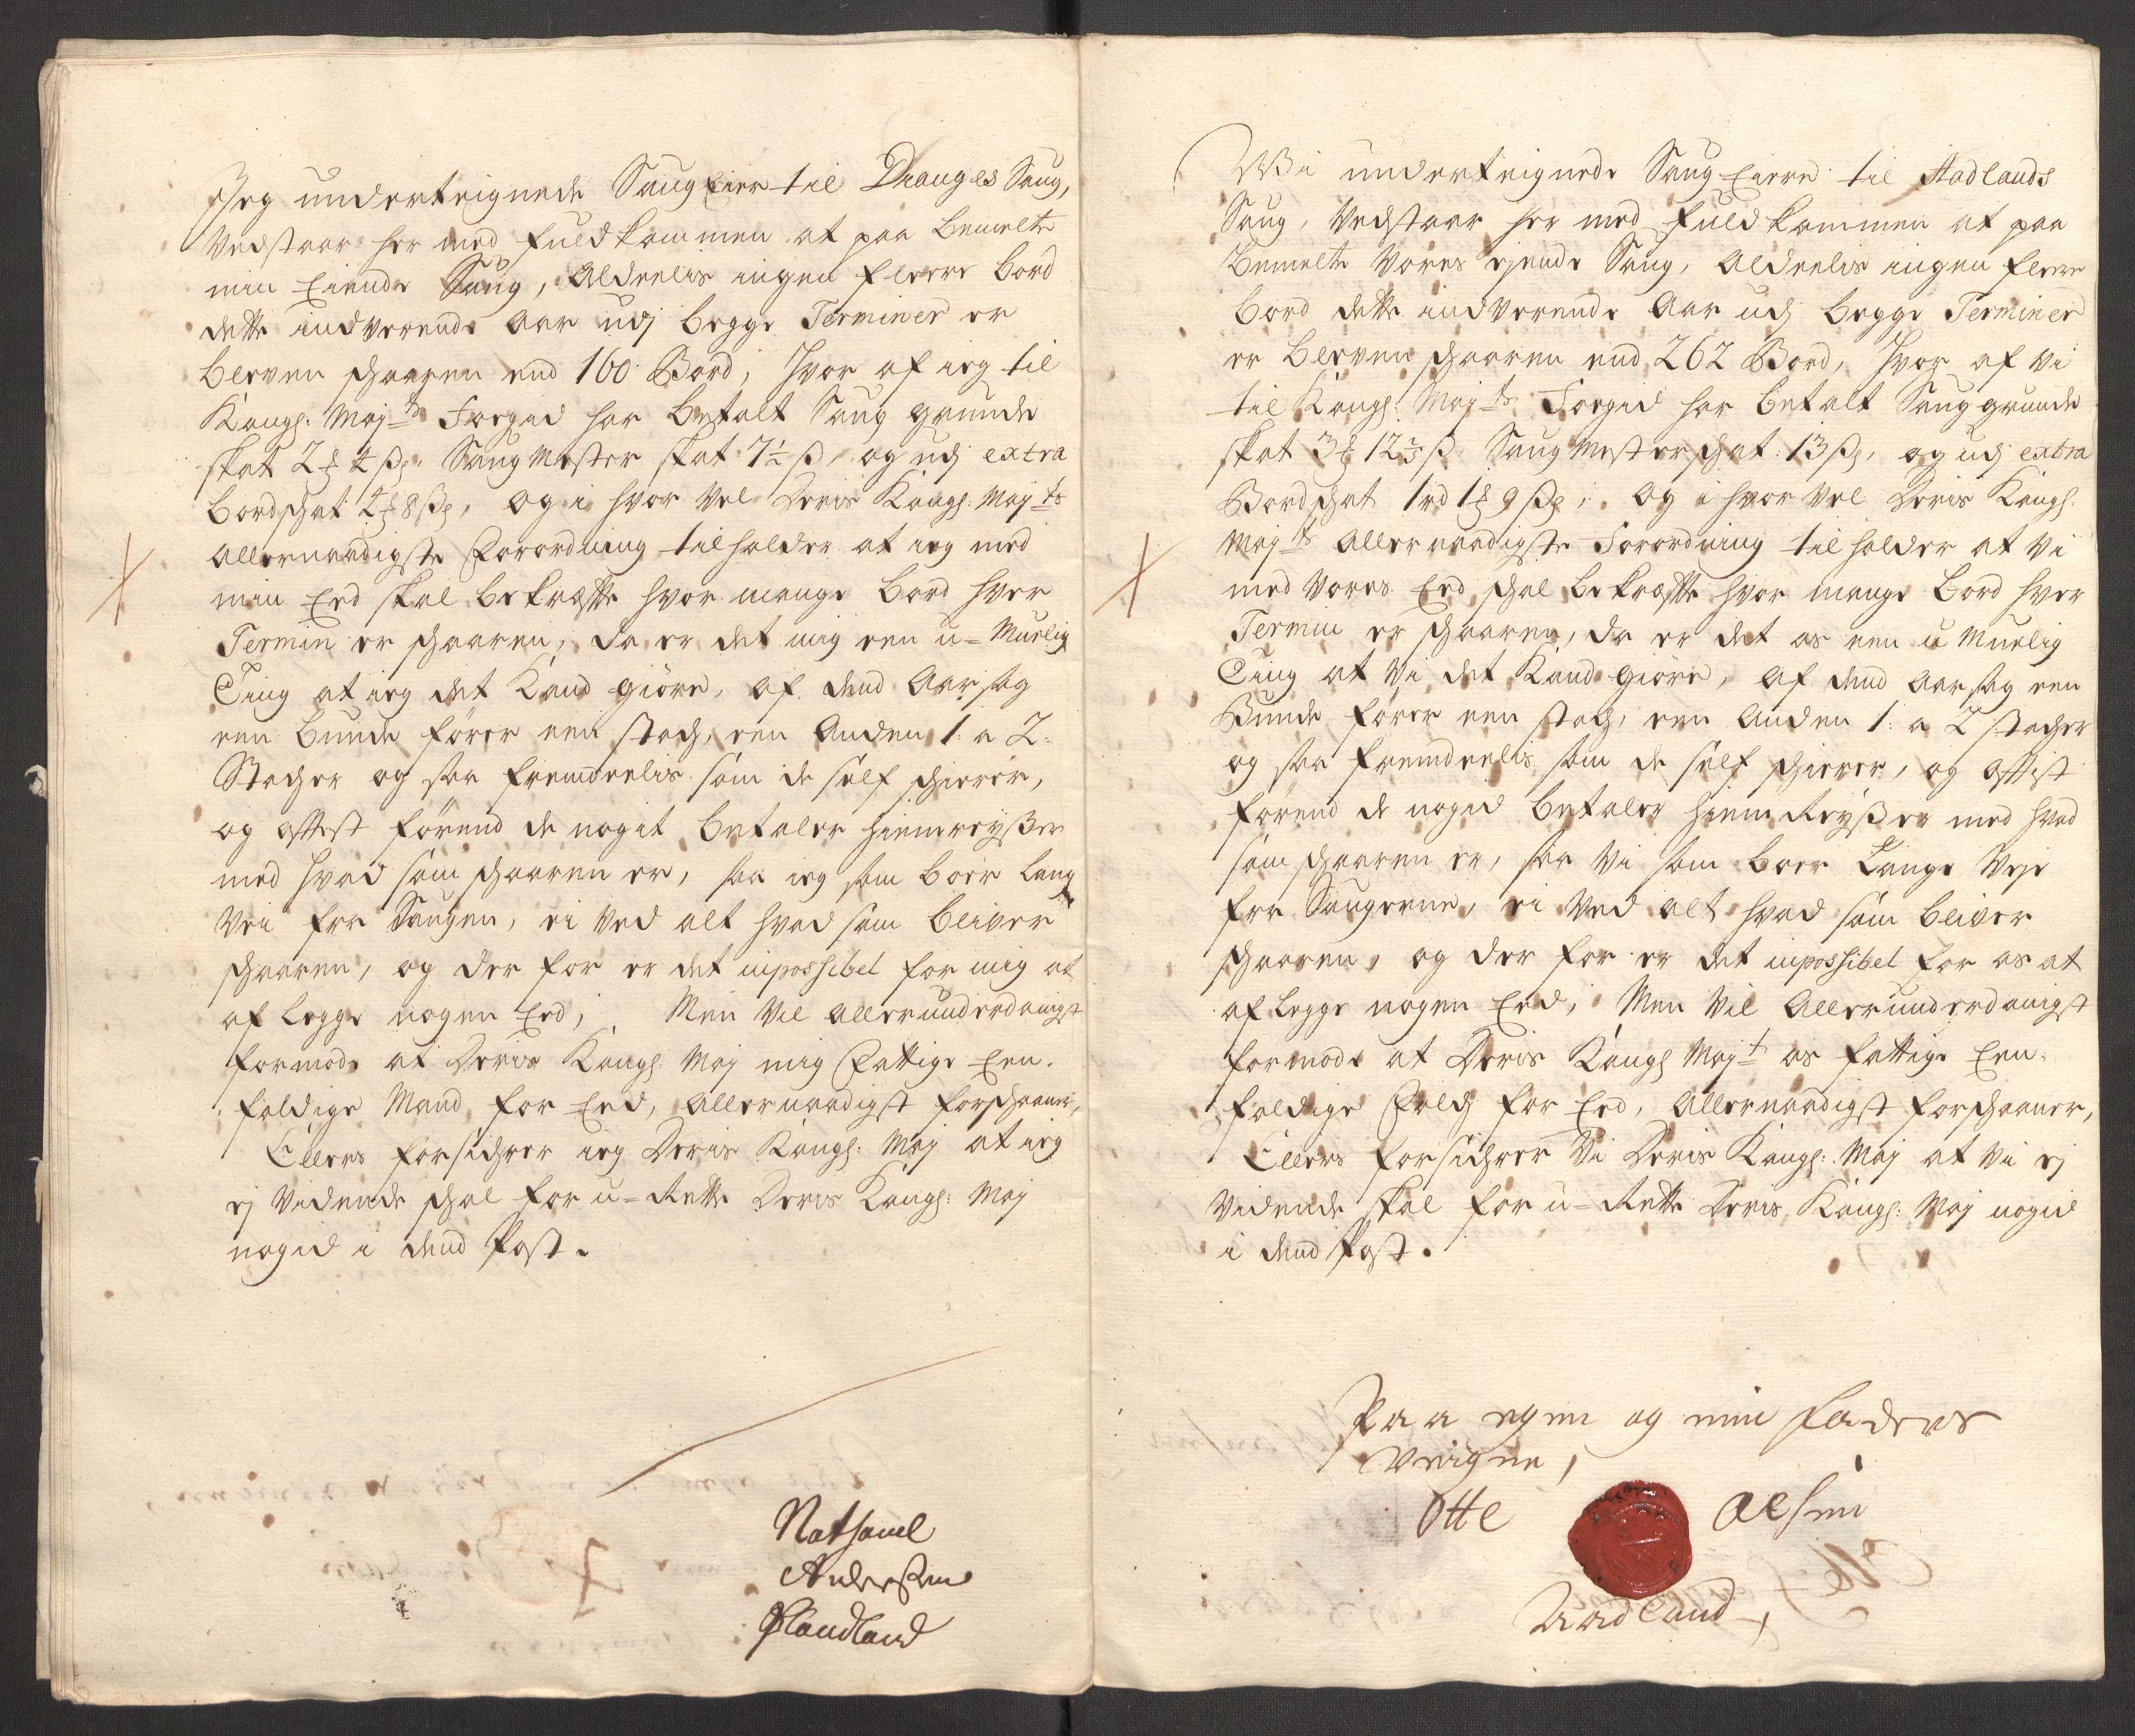 Jeg underteignede Saug Eier til Drauges Saug,
Vedstaar her med fuldkommen at paa bemelte
min Eiende Saug, Aldeelis ingen fleere bord
dette indverende Aar udj begge Terminer er
bleven schaaren end 160 Bord, Hvor af ieg til
Kongl: Maj:ts Fogid har betalt Saug grunde
skat 2 ₰ 4 ß, Saug Mester skat 7½ ß, og udj extra
bordschat 4 ₰ 8 ß, og i hvor vel Deris Kongl: Maj:ts
Allernaadigste Forordning tilholder at ieg med
min Eed skal bekræffte hvor mange bord hver
Termin er schaaren, da er det mig een u-Muelig
Ting at ieg det Kand giöre, af dend Aarsag
een bunde förer een stoch, een Anden 1: a 2:
Stocher og saa fremdeelis som de self schierer,
og offtest förend de nogit betaler hiemreyßer
med hvad som schaaren er, saa ieg som boer lang
Vei fra Saugen, ei ved alt hvad som bliver
schaaren, og der for er det inpossibel for mig at
af legge nogen Eed; Men Vil allerunderdanigst
formode at Deris Kongl: Maj mig Fattige Een-
foldige Mand for Eed, allernaadigst forschaaner,
Ellers forsichrer ieg Deris Kongl: Maj at ieg
ej Vidende schal for u-Rette Deris Kongl: Maj
nogid i dend Post.
Nathanel
Anderßen
Øland
Wi underteignede Saug Eiere til Aadlands
Saug, Vedstaar her med fuldkommen at paa
Bemelte Vores ejende Saug, Aldeelis ingen fleere
bord dette indverende Aar udj begge Terminer
er bleven schaaren end 262 Bord, Hvor af Vi
til Kongl: Maj:ts Fogid har betalt Saug grunde
skat 3 ₰ 12⅔ ß, Saug Mester schat 13 ß, og udj extra
Bordschat 1 rd 1 ₰ 9 ß, og i hvor vel Deris Kongl.
Maj:ts Allernaadigste Forordning til holder at Vi
med Vores Eed schal bekræffte hvor mange bord hver
Termin er schaaren, da er det os een u Muelig
Ting at Vi det Kand giöre, af dend aarsag een
Bunde förer een stoch, een Anden 1: a 2 stocher
og saa fremdeelis som de self schierer, og offtist
förend de nogid betaler hiem Reyßer med hvad
som schaaren er, saa Vi som boer Lange Veje
fra Saugerne, ei Ved alt hvad som bliver
schaaren, og der for er det inpossibel for os at
af legge nogen Eed, Men Vil Allerunderdanigst
formode at Deris Kongl Maj:t os fattige Een-
foldige Folch for Eed, Allernaadigst forschaaner,
Ellers forsichrer Vi Deris Kongl: Maj at Vi ej
Vidende skal for u-Rette Deris Kongl: Maj nogid
i dend Post.
Paa egen og min Faders
Veigne,
Otte Olsen
Aadland